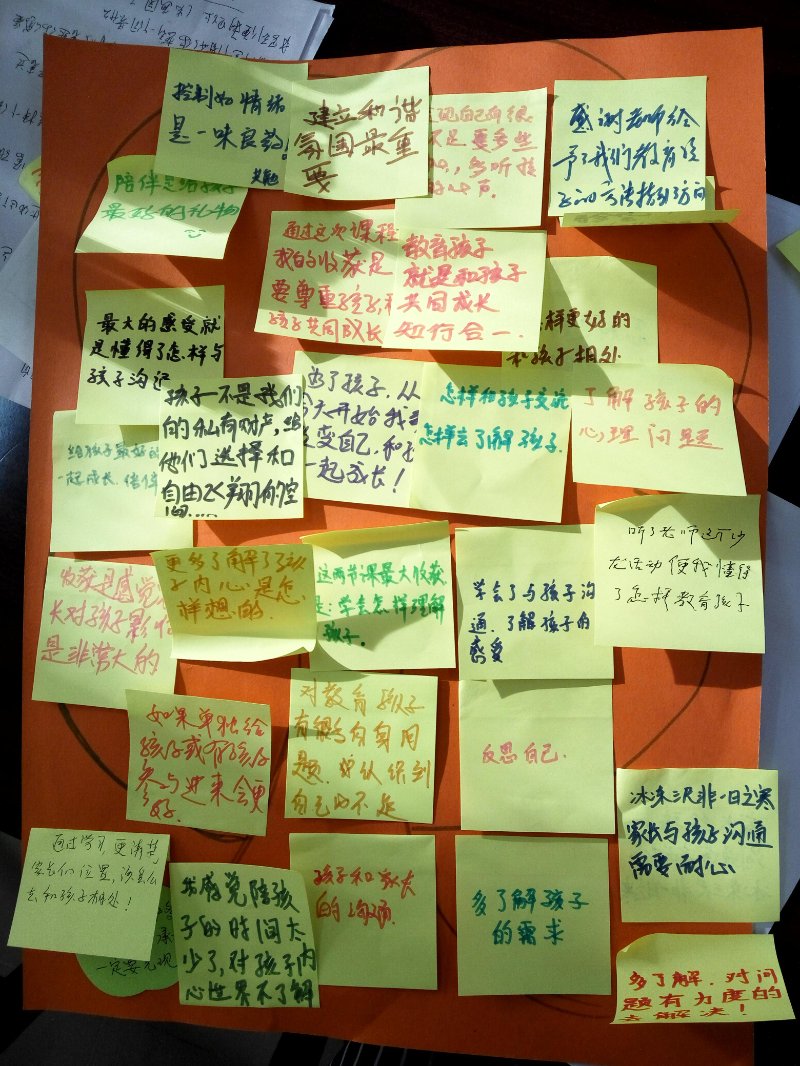 控制好情绪
是一味良药!
建立和谐
氛围最重
要
见自己有很
不足 要多些
多听孩
的心声
感谢老师给
予了我们教育孩
子的方法指到了方向
陪伴是给孩子
最好的礼物
通过这次课程
我的收获是
要尊重孩子,和
孩子共同成长
教育孩子
就是和孩子
共同成长
知行合一
怎样更好的
和孩子相处
最大的感受就
是懂得了怎样与
孩子沟通
孩子不是我们
的私有财产,给
他们选择和
自由飞翔的空
间.....
为了孩子,从
今天开始我要
改变自己,和孩
一起成长!
怎样和孩子交流
怎样去了解孩子.
了解孩子的
心理问题
给孩子最好的
一起成长.陪伴
收获是感觉
长对孩子影响
是非常大的
更多了解了孩
子内心是怎
样想的.
这两节课最大收获
是:学会怎样理解
孩子。
学会了与孩子沟
通,了解孩子的
感受
听了老师这个沙
龙活动使我懂得
了怎样教育孩子
如果单独给
孩子或有孩子
参与进来会更
好.
对教育孩子
有很多自身问
题.
自己的不足
反思自己.
冰冻三尺非一日之寒
家长与孩子沟通
需要耐心
通过学习,更清楚
家长们位置,该怎么
去和孩子相处!
一定要
我感觉陪孩
子的时间太
少了,对孩子内
心世界不了解
孩子和家长
的沟通
多了解孩子
的需求
多了解.对问
题有力度的
去解决!